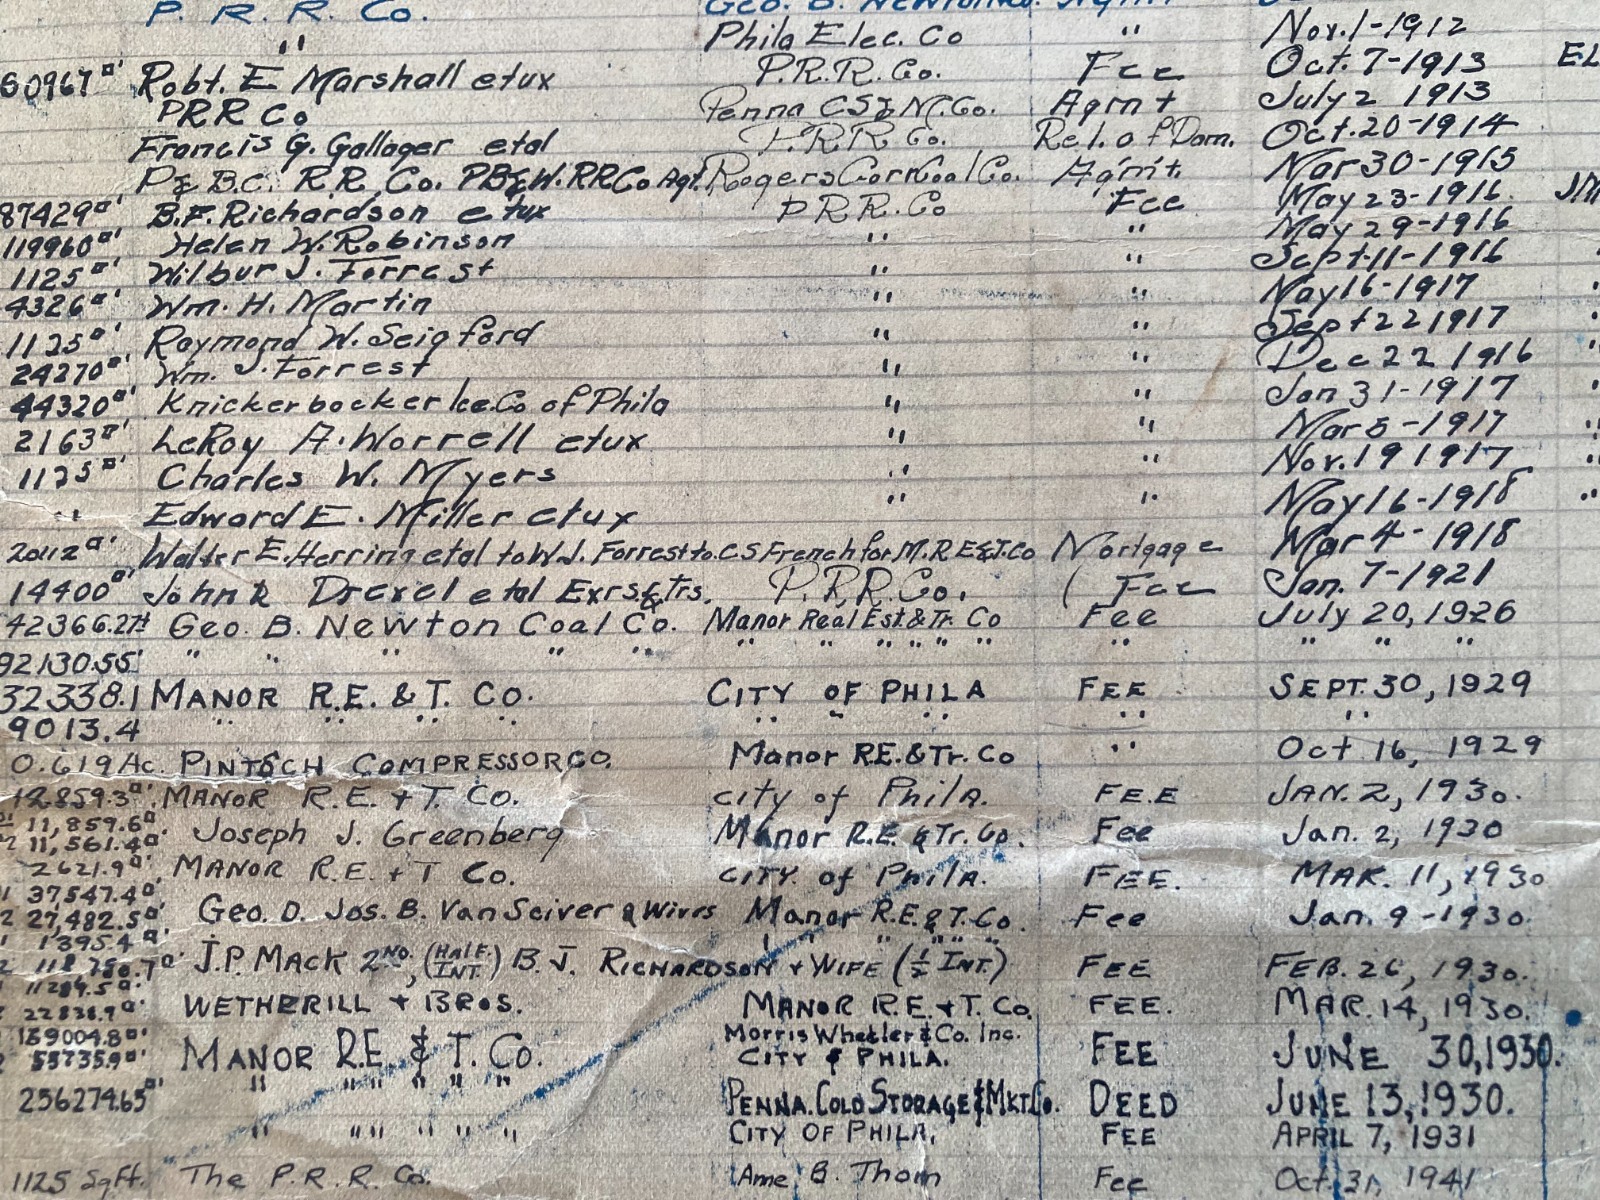 P. R. R. Co. Geo. B. Newton Agmt
" Phila Elec. Co " Nov. 1-1912
60967□' Robt. E Marshall etux P.R.R. Co. Fee Oct. 7-1913 EL
PRR Co Penna CS& M. Co. Agmt July 2 1913
Francis G. Gallager etal P.R.R. Co. Rel. of Dam. Oct. 20-1914
P& B.C. R.R. Co. PB&W.RRCo Agt. Rogers Corn Coal Co. Agm't. Mar 30-1915
87429□' B.F. Richardson etux P.R.R. Co Fee May 23-1916 JM
119960□' Helen W. Robinson " " May 29-1916
1125□' Wilbur J. Forrest " " Sept-11-1916
4326□' Wm. H. Martin " " May 16-1917
1125□' Raymond W. Seigford " " Sept 22 1917
24270□' Wm. J. Forrest " " Dec 22 1916
44320□' Knickerbocker Ice. Co of Phila " " Jan 31-1917
2163□' LeRoy A. Worrell etux " " Mar 5-1917
1125□' Charles W. Myers " " Nov. 19 1917
" Edward E. Miller etux " " May 16-1918
20112□' Walter E. Herring etal to W.J. Forrest to C S French for M.R.E&T.Co Mortgage Mar 4-1918
14400□' John R Drexel etal Exrs.& Trs. P.R.R. Co. Fee Jan. 7-1921
42366.27# Geo. B. Newton Coal Co. Manor Real Est.& Tr. Co Fee July 20, 1926
92130.55' " " " " " " " " " " " " " "
32338.1 MANOR R.E. & T. CO. CITY OF PHILA FEE SEPT. 30, 1929
9013.4 " " " " " " " " "
0.619 Ac. PINTSCH COMPRESSOR CO. Manor R.E. & Tr. Co " Oct 16, 1929
12859.3□' MANOR R.E. + T. CO. city of Phila. FEE JAN. 2, 1930.
11,859.6□'
11,561.4□' Joseph J. Greenberg Manor R.E. & Tr. Co. Fee Jan. 2, 1930
2621.9□' MANOR R.E. + T CO. CITY of Phila. FEE. MAR. 11, 1930
37,547.4□'
27,482.5□' Geo. D. Jos. B. Van Sciver & Wives Manor R.E & T. Co. Fee Jan. 9-1930.
1395.4□' " " " " "
J.P. MACK 2ND, (HALF INT.) B. J. RICHARDSON + WIFE (½ INT.) FEE FEB. 26, 1930.
WETHERILL + BROS. MANOR R.E. + T. Co. FEE. MAR. 14, 1930.
139004.8□' Morris Wheeler & Co. Inc.
53735.9□' MANOR R.E. & T. Co. CITY & PHILA. FEE JUNE 30, 1930.
256274.65□' " " " " " PENNA. COLD STORAGE & MKT. Co. DEED JUNE 13, 1930.
" " " " " CITY OF PHILA. FEE APRIL 7, 1931
1125 Sq Ft. The P. R. R. Co. B. Thom Fee Oct. 31, 1941